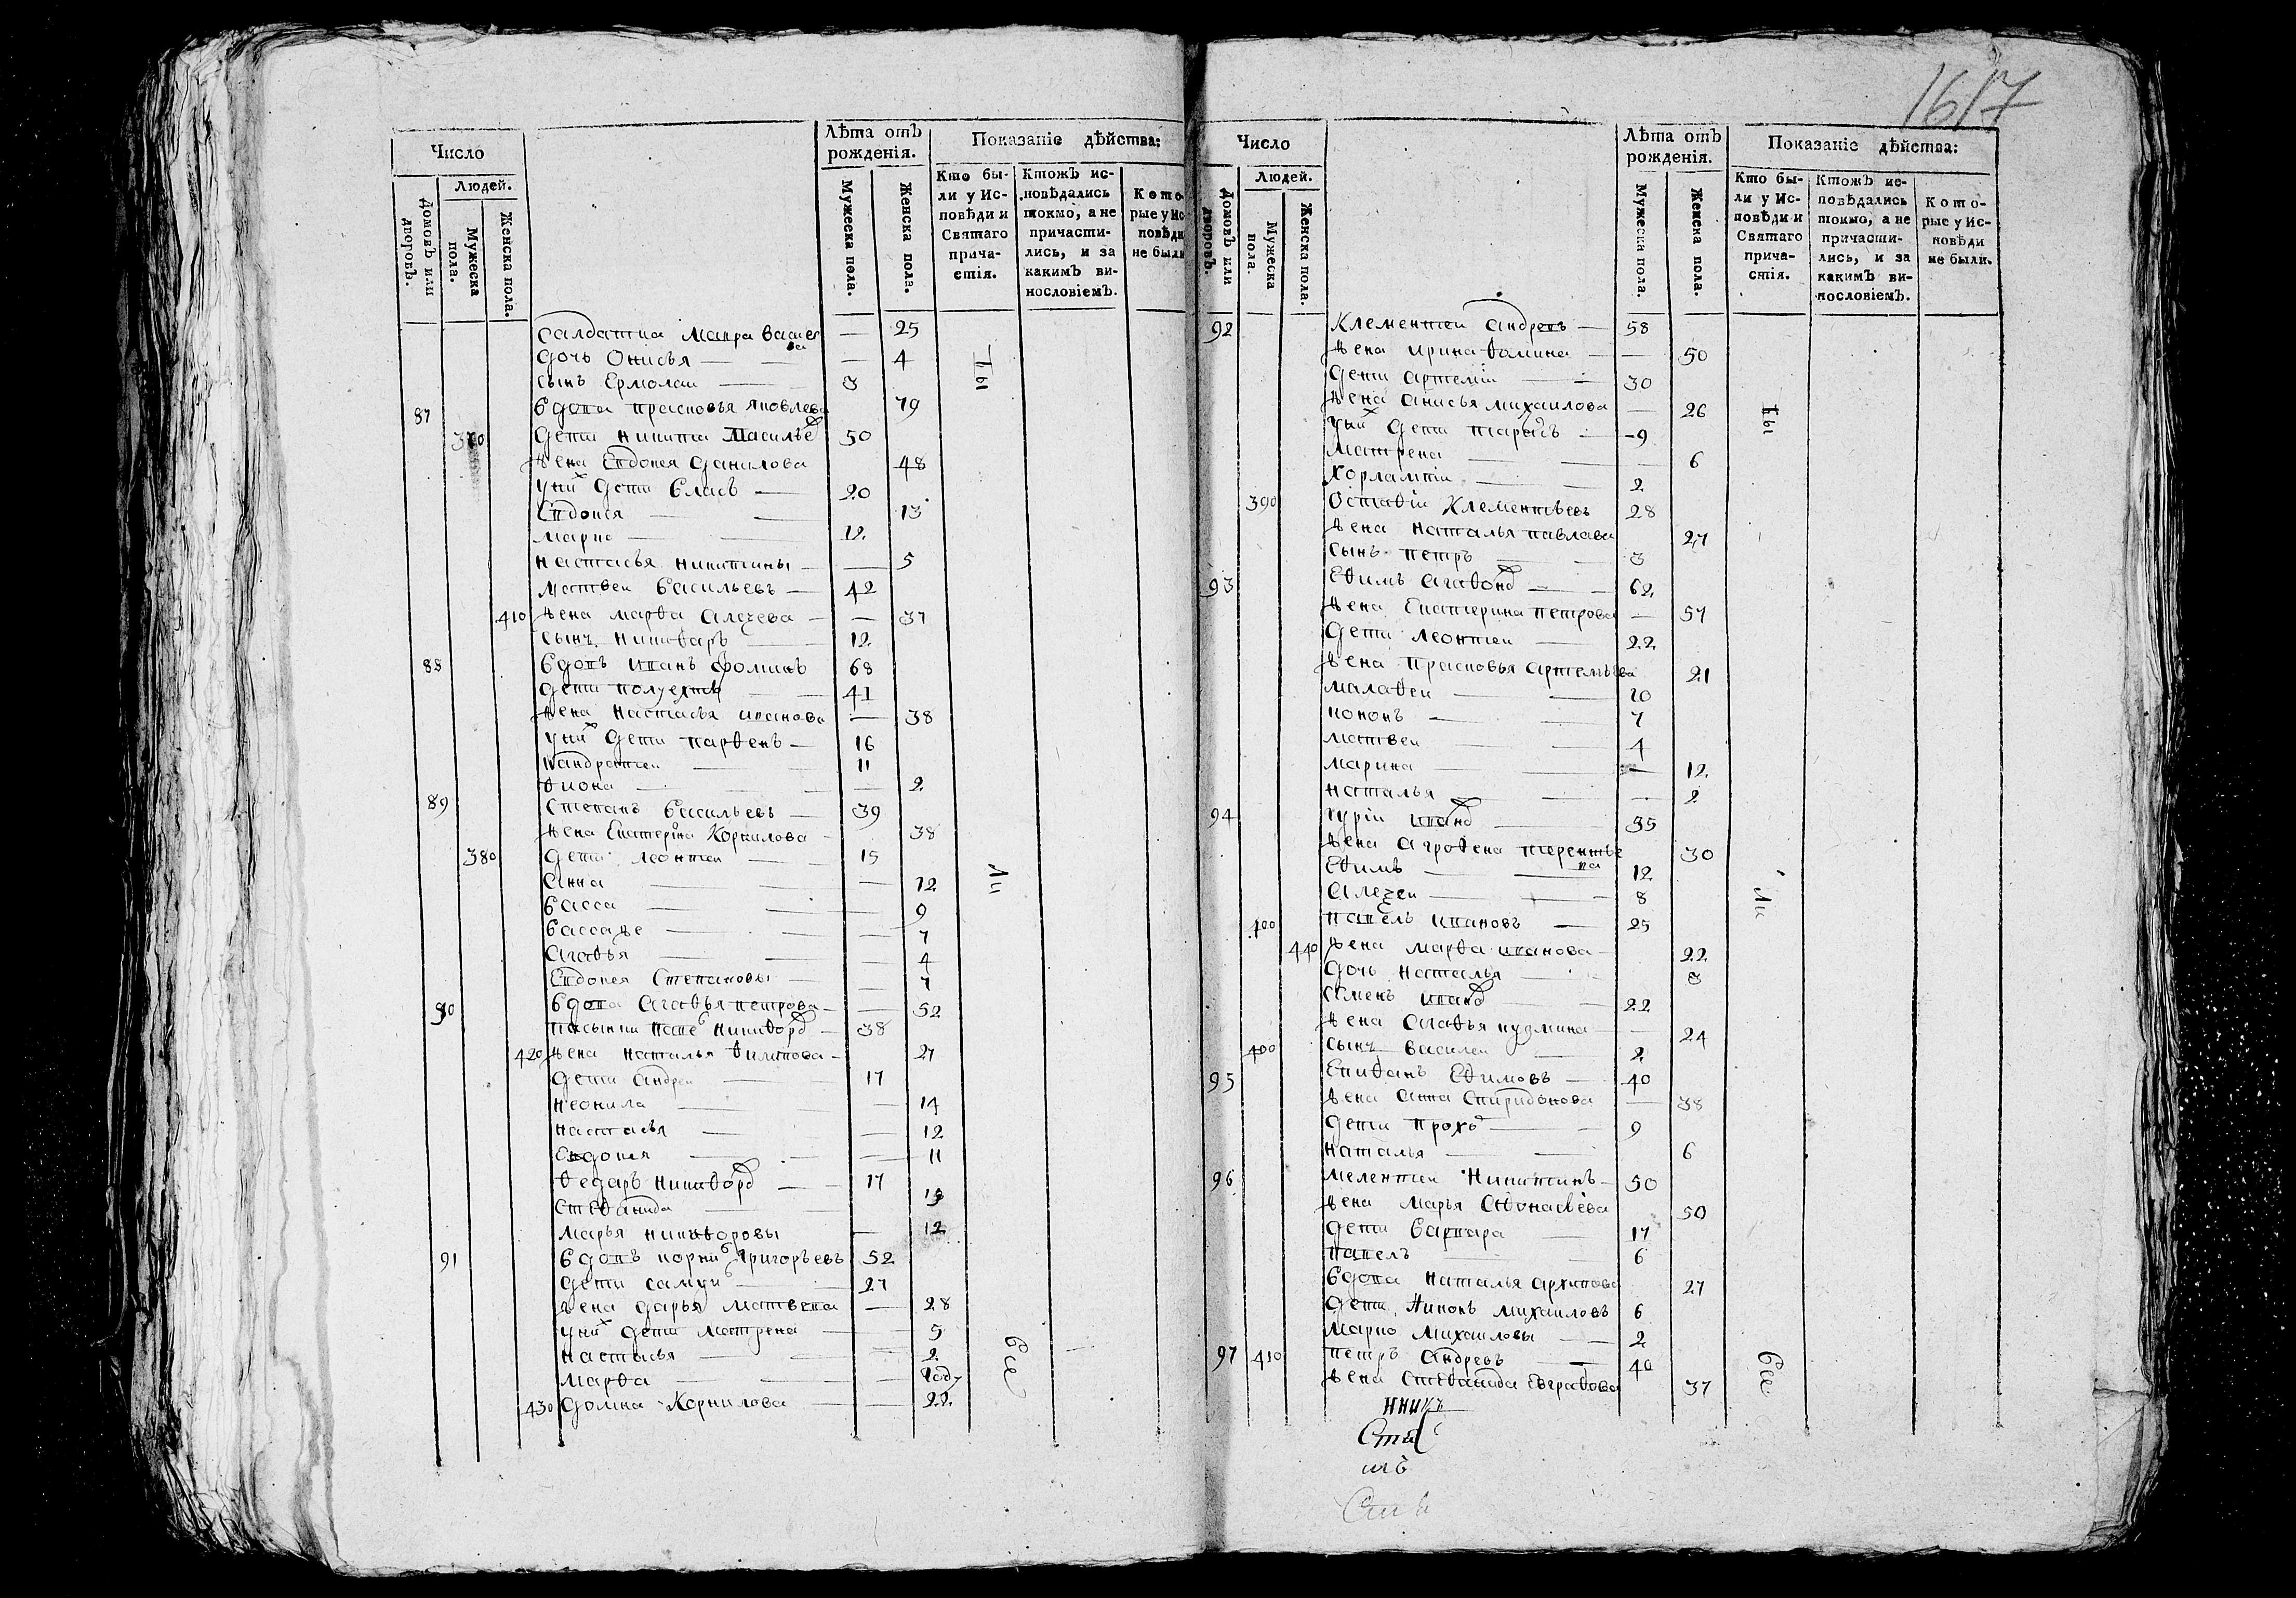 1617
Число
Лѣта отъ рожденія.
Показаніе дѣйства:
Людей.
Домовъ или дворовъ.
Мужеска пола.
Женска пола.
Мужеска пола.
Женска пола.
Кто были у Исповѣди и Святаго причастія.
Ктожъ исповѣдались токмо, а не причастились, и за какимъ винословіемъ.
Которые у Исповѣди не были
Салдатка Мавра Васил ва — 25
дочь Онисья — — 4
сынъ Ермолаи — 3
87 вдова прасковья яковлева 79
370 дети никита Василье 50
жена Евдокея данилова 48
у них дети Власъ — 20
Евдокея — 13
марко — 12
настасья никитины — 5
матвеи васильевъ — 42
410 жена марѳа алеѯева — 37
сынъ никиѳаръ 12
88 вдовъ иванъ фоминъ 68
дети полуехтъ — 41
жена настасья иванова — 38
у них дети парѳенъ — 16
кандратеи — 11
ѳиона — 2
89 степанъ васильевъ — 39
жена Екатерина Корнилова — 38
380 дети леонтеи — 15
анна — 12
васса — 9
вассаже — 7
агаѳья — 4
Евдокея степановы — 7
90 вдова агаѳья петрова — 52
пасынки никиѳор — 38
420 жена наталья ѳилипова — 27
дети андреи — 17
неонила — 14
настасья — 12
Евдокея — 11
ѳедаръ никиѳор — 17
стеѳанида — 13
марья никиѳоровы — 12
91 вдовъ корни григорьевъ 52
дети самуи — 27
жена дарья матвева — 28
у них дети матрена — 5
настасья — 2
марѳа — году
430 домна Корнилова — 22
Ты
Ли
Все
Число
Лѣта отъ рожденія.
Показаніе дѣйства:
Людей.
Домовъ или дворовъ.
Мужеска пола.
Женска пола.
Мужеска пола.
Женска пола.
Кто были у Исповѣди и Святаго причастія.
Ктожъ исповѣдались токмо, а не причастились, и за какимъ винословіемъ.
Которые у Исповѣди не были.
92 Клементеи андревъ — 58
жена ирина ѳомина — 50
дети артеміи — 30
жена анисья михаилова — 26
у них дети тарасъ — 9
матрена — 6
харлампіи — 2
390 Остаѳіи Клементьевъ 28
жена наталья павлава 27
сынъ петръ — 3
93 Еѳимъ агаѳон — 62
жена Екатерина петрова — 57
дети леонтеи — 22
жена прасковья артемьева 21
малаѳеи — 10
кононъ — 7
матвеи — 4
марина — 12
наталья — 2
94 гуріи иван — 35
жена агроѳена терентье ва 30
Еѳимъ — 12
алеѯеи — 8
400 павелъ ивановъ — 25
440 жена марѳа иванова — 22
дочь наталья — 3
семенъ иван — 22
жена агаѳья кузмина — 24
400 сынъ василеи — 2
95 Епиѳанъ Еѳимовъ — 40
жена анна спиридонова — 38
дети прохо — 9
наталья — 6
96 мелентеи Никитинъ — 50
жена марья аѳонасьева 50
дети варвара — 17
павелъ — 6
вдова наталья архипова 27
дети никонъ михаиловъ 6
марко михаиловы — 2
97 410 петръ андревъ — 40
жена стеѳанида Евграѳова 37
ты
Ли
Все